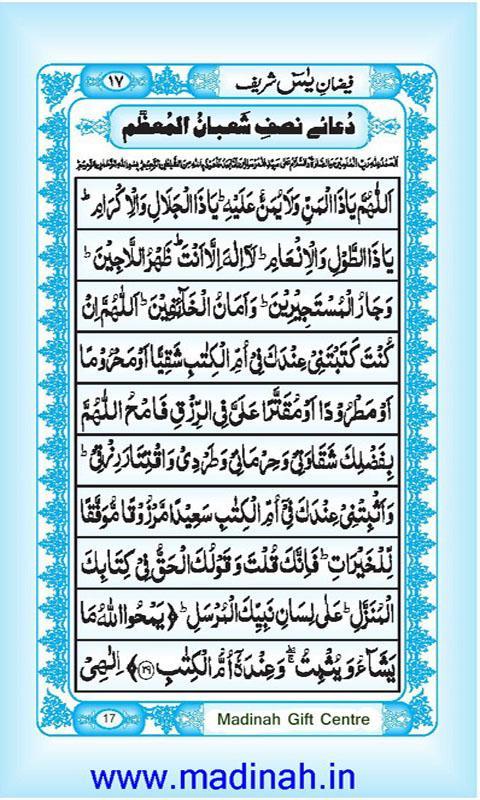 فیضانِ یٰسٓ شریف
۱۷
دُعائے نصفِ شَعبانُ المُعظَّم
اَللّٰهُمَّ يَا ذَا الْمَنِّ وَلَا يُمَنُّ عَلَيْهِ ؕ يَا ذَا الْجَلَالِ وَالْاِكْرَامِ ؕ
يَا ذَا الطَّوْلِ وَالْاِنْعَامِ ؕ لَآ اِلٰهَ اِلَّا اَنْتَ ؕ ظَهْرُ اللَّاجِيْنَ ؕ
وَجَارُ الْمُسْتَجِيْرِيْنَ ؕ وَاَمَانُ الْخَآئِفِيْنَ ؕ اَللّٰهُمَّ اِنْ
كُنْتَ كَتَبْتَنِیْ عِنْدَكَ فِیْٓ اُمِّ الْكِتٰبِ شَقِيًّا اَوْ مَحْرُوْمًا
اَوْ مَطْرُوْدًا اَوْ مُقَتَّرًا عَلَیَّ فِی الرِّزْقِ فَامْحُ اللّٰهُمَّ
بِفَضْلِكَ شَقَاوَتِیْ وَحِرْمَانِیْ وَطَرْدِیْ وَاقْتِتَارَ رِزْقِیْ ؕ
وَاَثْبِتْنِیْ عِنْدَكَ فِیْٓ اُمِّ الْكِتٰبِ سَعِيْدًا مَّرْزُوْقًا مُّوَفَّقًا
لِّلْخَيْرَاتِ ؕ فَاِنَّكَ قُلْتَ وَقَوْلُكَ الْحَقُّ فِیْ كِتَابِكَ
الْمُنَزَّلِ ؕ عَلٰی لِسَانِ نَبِيِّكَ الْمُرْسَلِ ؕ ﴿يَمْحُوا اللّٰهُ مَا
يَشَآءُ وَيُثْبِتُ ۖۚ وَعِنْدَهٗٓ اُمُّ الْكِتٰبِ ﴿۳۹﴾ اِلٰهِیْ
17
Madinah Gift Centre
www.madinah.in